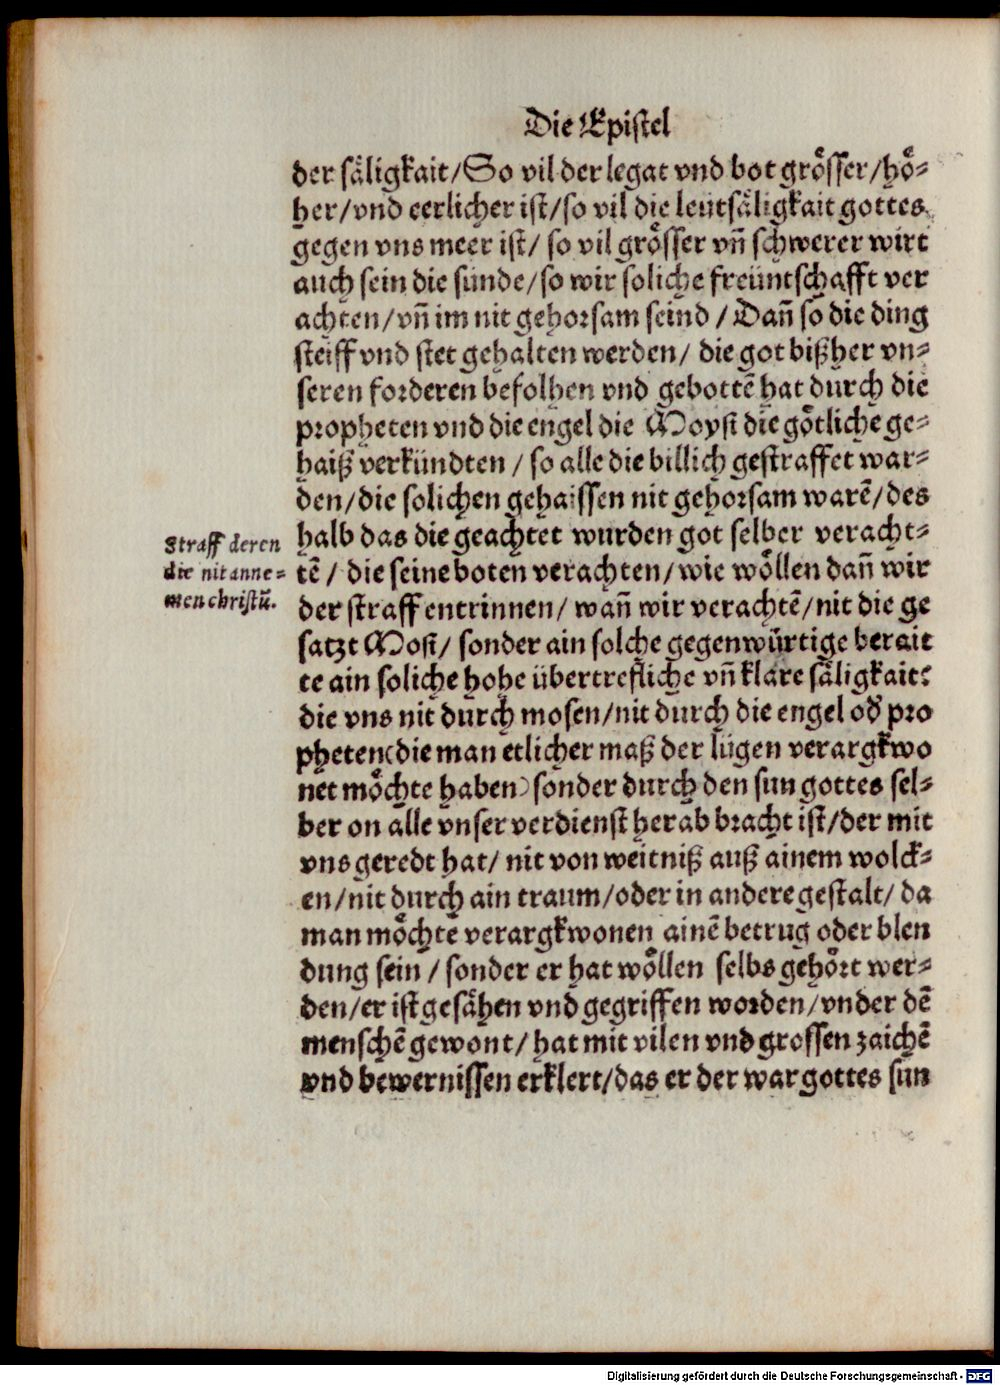 Die Epistel
der säligkait/So vil der legat vnd bot grösser/hö⸗
her/vnd eerlicher ist/so vil die leutsäligkait gottes
gegen vns meer ist/ so vil grösser vñ schwerer wirt
auch sein die sünde/so wir soliche freüntschafft ver
achten/vñ im nit gehorsam seind /Dañ so die ding
steiff vnd stet gehalten werden/ die got bißher vn⸗
seren forderen befolhen vnd gebottē hat durch die
propheten vnd die engel die Moysi die götliche ge⸗
haiß verkündten / so alle die billich gestraffet war⸗
den/die solichen gehaissen nit gehorsam warē/des
halb das die geachtet wurden got selber veracht⸗
tē / die seine boten verachten/wie wöllen dañ wir
der straff entrinnen/ wañ wir verachtē/nit die ge
satzt Mosi/ sonder ain solche gegenwürtige berait
te ain soliche hohe übertrefliche vñ klare säligkait:
die vns nit durch mosen/nit durch die engel oď pro
pheten(die man etlicher maß der lügen verargkwo
net möchte haben) sonder durch den sun gottes sel⸗
ber on alle vnser verdienst herab bracht ist/der mit
vns geredt hat/ nit von weitniß auß ainem wolck⸗
en/nit durch ain traum/oder in andere gestalt/ da
man möchte verargkwonen ainē betrug oder blen
dung sein / sonder er hat wöllen selbs gehört wer⸗
den/er ist gesähen vnd gegriffen worden/vnder dē
menschē gewont/ hat mit vilen vnd grossen zaichē
vnd bewernissen erklert/das er der war gottes sun
Straff deren
die nit anne⸗
men christū.
Digitalisierung gefördert durch die Deutsche Forschungsgemeinschaft - DFG